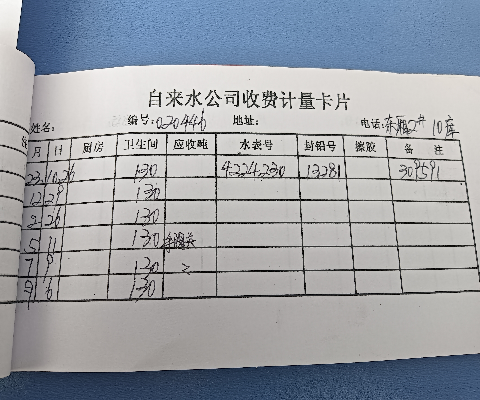 自来水公司收费计量卡片
姓名: 编号:020446 地址: 电话: 10库
月 日 厨房 卫生间 应收吨 水表号 封铅号 橡胶 备 注
23.10.26 130 4224230 13281 309591
12 29 130
2 26 130
5 11 130
7 9 130 2
9 6 130